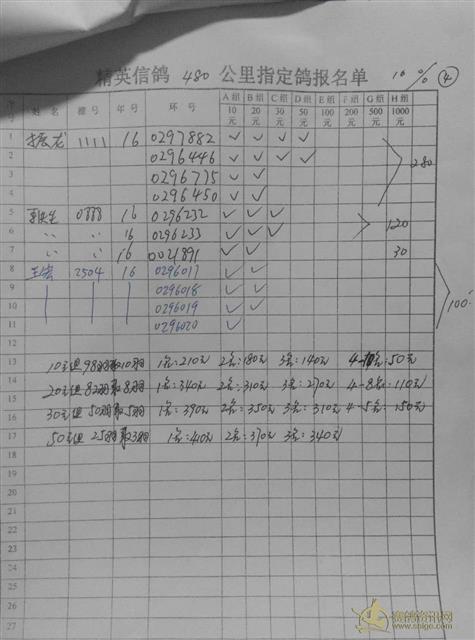 精英信鸽 480 公里指定鸽报名单 10% ④
序号 姓名 棚号 年号 环号 A组10元 B组20元 C组30元 D组50元 E组100元 F组200元 G组500元 H组1000元
1 1111 16 0297882 ✓ ✓ ✓ ✓
2 0296446 ✓ ✓ ✓ ✓ 280
3 0296775 ✓ ✓
4 0296450 ✓ ✓
5 0888 16 0296232 ✓ ✓ ✓
6 〃 〃 16 0296233 ✓ ✓ ✓ 120
7 〃 〃 16 0021891 ✓ ✓ 30
8 2504 16 0296017 ✓ ✓
9 0296018 ✓ ✓
10 0296019 ✓ ✓ 100
11 0296020 ✓
12
13 10元组98羽取10羽 1名:210元 2名:180元 3名:140元 4-10名:50元
14 20元组82羽取8羽 1名:340元 2名:310元 3名:270元 4-8名:110元
15
16 30元组50羽取5羽 1名:390元 2名:350元 3名:310元 4-5名:150元
17 50元组25羽取3羽 1名:410元 2名:370元 3名:340元
18
19
20
21
22
23
24
25
26
27
赛鸽资讯网
www.sgigo.com